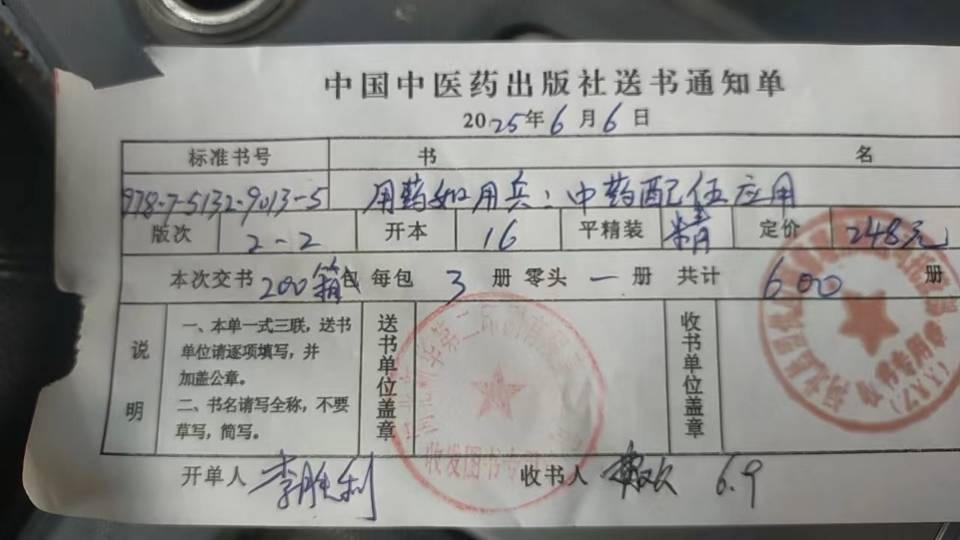 中国中医药出版社送书通知单
2025年6月6日
标准书号 书 名
978-7-5132-9013-5 用药如用兵：中药配伍应用
版次 2-2 开本 16 平精装 精 定价 248元
本次交书 200箱包 每包 3 册 零头 一 册 共计 600 册
说明
一、本单一式三联，送书
单位请逐项填写，并
加盖公章。
二、书名请写全称，不要
草写，简写。
送书单位盖章
收发图书专用
收书单位盖章
开单人 李胜利 收书人 6.9